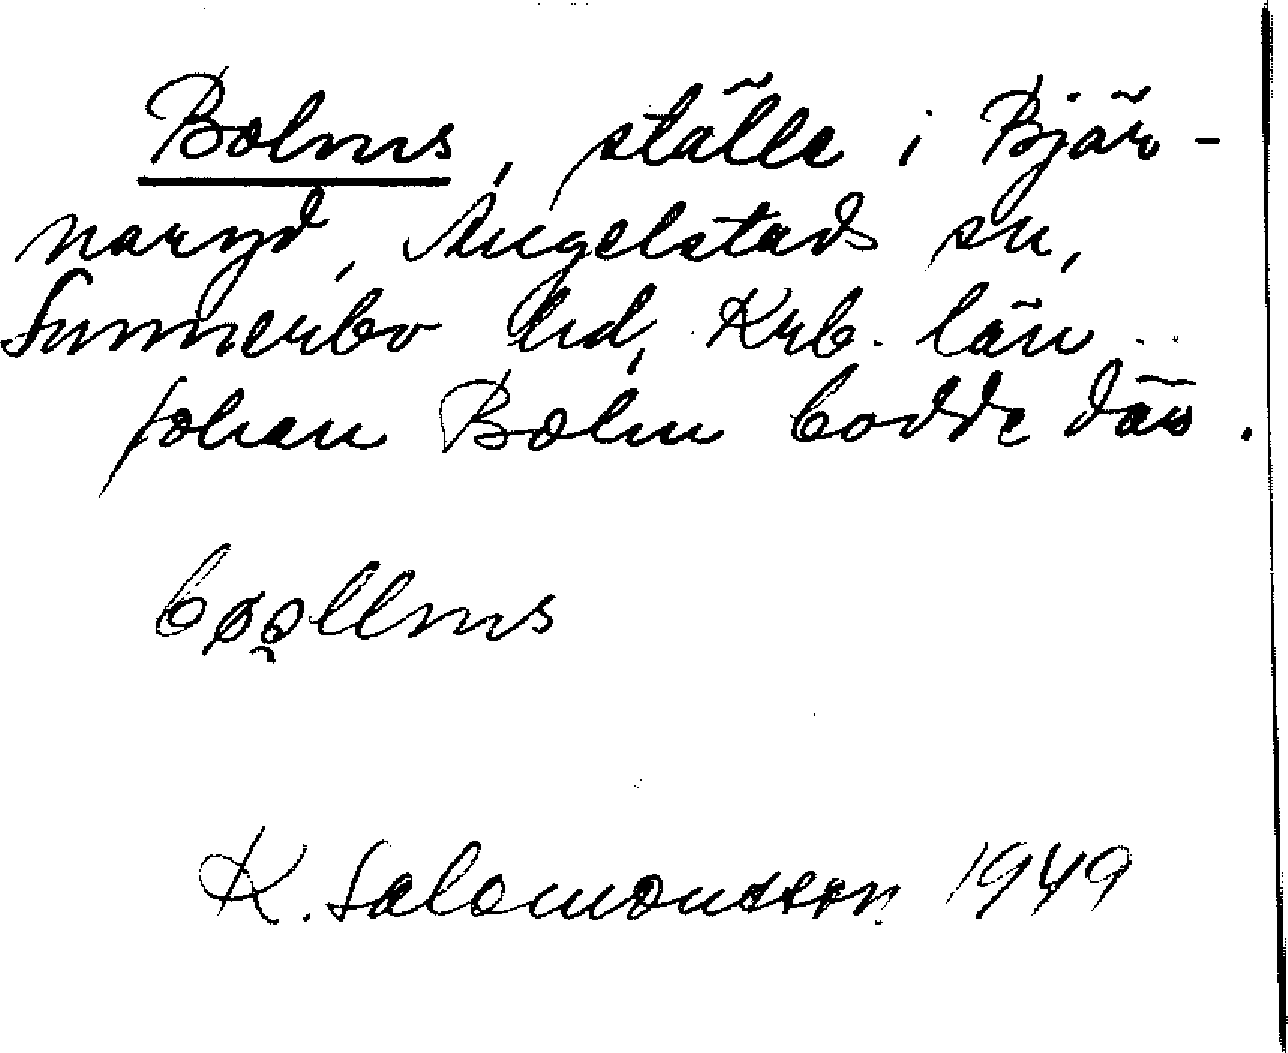 Bolms, ställe i Bjär-
naryd, Angelstads sn,
Sunnerbo hd, Krb. län.
Johan Bolm bodde där.
bøo̰llms
K. Salomonsson 1949